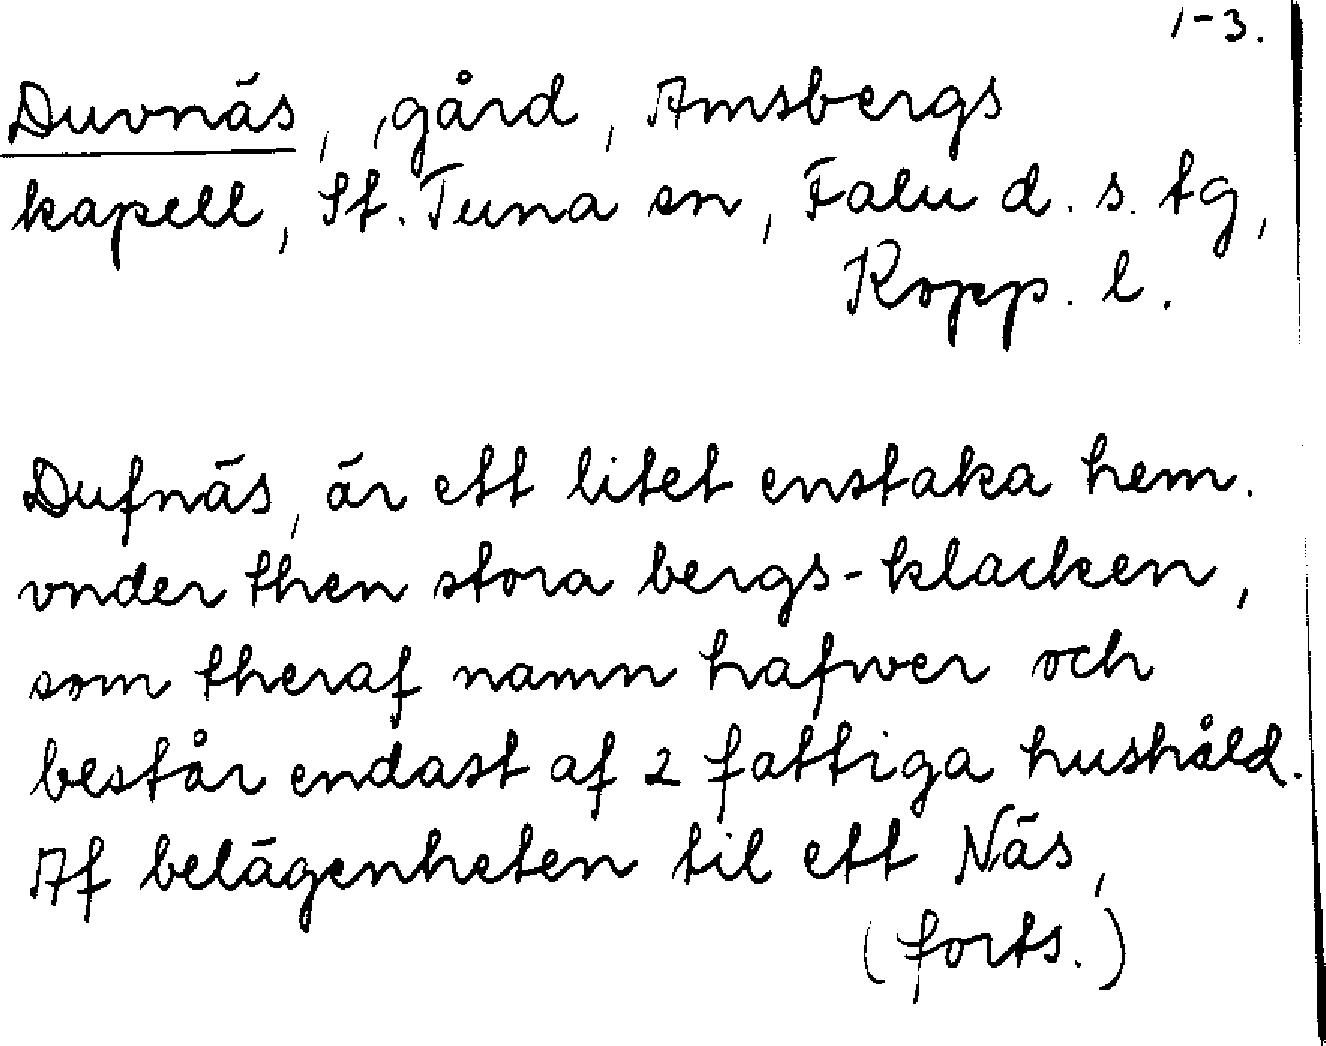 1-3.
Duvnäs, gård, Amsbergs
kapell, St. Tuna sn, Falu d. s. tg,
Kopp. l.
Dufnäs, är ett litet enstaka hem.
vnder then stora bergs-klacken,
som theraf namn hafwer och
består endast af 2 fattiga hushåld.
Af belägenheten til ett Näs,
(forts.)